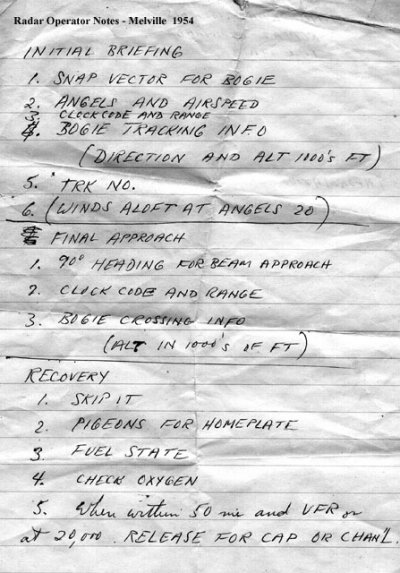 Radar Operator Notes - Melville 1954
INITIAL BRIEFING
1. SNAP VECTOR FOR BOGIE
2. ANGELS AND AIRSPEED
3. CLOCK CODE AND RANGE
4. BOGIE TRACKING INFO
(DIRECTION AND ALT 1000's FT)
5. TRK NO.
6. (WINDS ALOFT AT ANGELS 20)
FINAL APPROACH
1. 90° HEADING FOR BEAM APPROACH
2. CLOCK CODE AND RANGE
3. BOGIE CROSSING INFO
(ALT IN 1000's OF FT)
RECOVERY
1. SKIP IT
2. PIGEONS FOR HOMEPLATE
3. FUEL STATE
4. CHECK OXYGEN
5. When within 50 mi and VFR or
at 20,000. RELEASE FOR CAP OR CHAN'L.